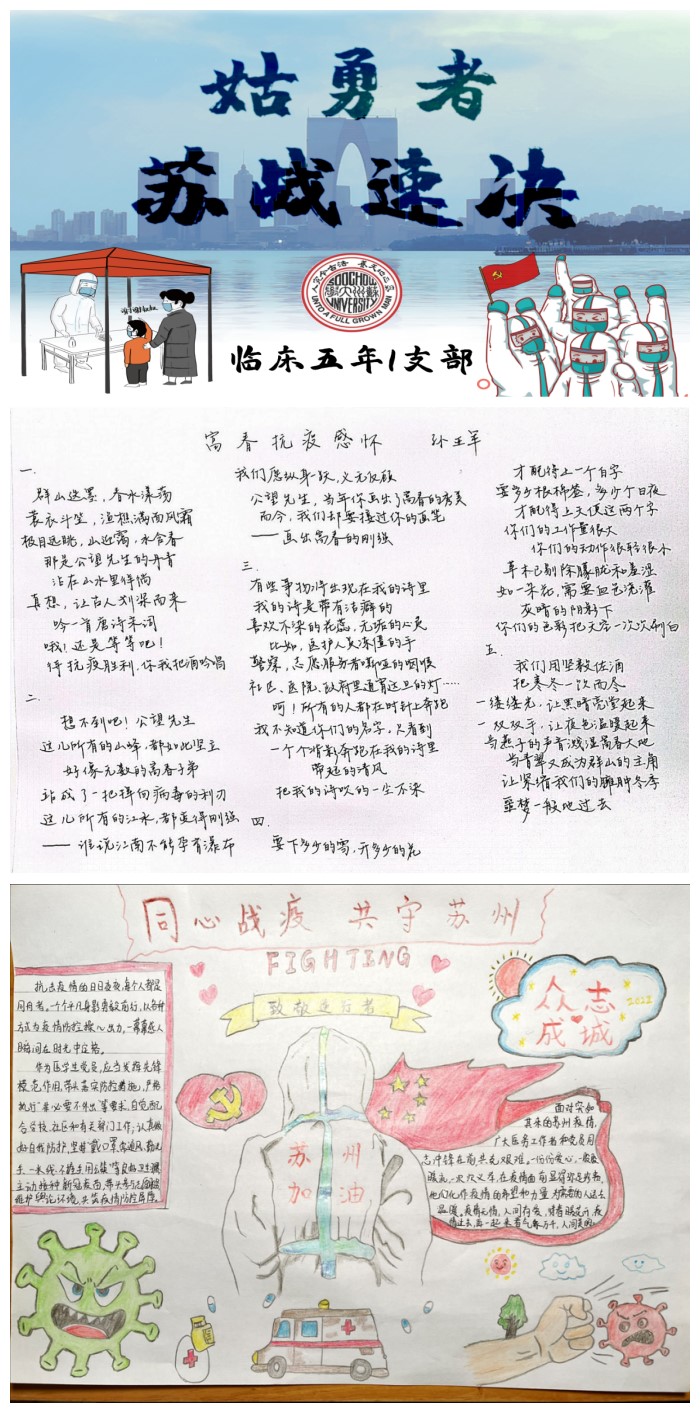 姑勇者
苏战速决
养天地正气 法古今完人
SOOCHOW
UNIVERSITY
UNTO A FULL GROWN MAN
临床五年1支部
富春抗疫感怀 孙王军
一.
群山迭墨，春水漾荡
蓑衣斗笠，渔樵满面风霜
极目远眺，山迤霭，水含春
那是公望先生的丹青
沾在山水里徘徊
真想，让古人划桨而来
吟一首唐诗宋词
哦！还是等等吧！
待抗疫胜利，你我把酒吟唱
二.
想不到吧！公望先生
这儿所有的山峰，都如此坚立
好像无数的富春子弟
站成了一把捍向病毒的利刃
这儿所有的江水，都变得刚强
——谁说江南不能孕育瀑布
我们愿纵身一跃，义无反顾
公望先生，当年你画出了富春的秀美
而今，我们却要接过你的画笔
——画出富春的刚强
三.
有些事物将出现在我的诗里
我的诗是带有洁癖的
喜欢不染的花蕊，无垢的心灵
比如，医护人员冻僵的手
警察，志愿服务者嘶哑的咽喉
社区、医院、政府里通宵达旦的灯……
呵！所有的人都在时针上奔跑
我不知道你们的名字，只看到
一个个背影奔跑在我的诗里
带起的清风
把我的诗吹的一尘不染
四.
要下多少的雪，开多少的花
才配得上一个白字
要多少根棉签，多少个日夜
才配得上天使这两个字
你们的工作量很大
你们的动作很轻很小
草木已剔除朦胧和羞涩
如一朵花，需要血色浇灌
灰暗的阴影下
你们的色彩把天空一次次刷白
五.
我们用坚毅佐酒
把寒冬一饮而尽
一缕缕光，让黑暗亮堂起来
一双双手，让夜色温暖起来
当燕子的声音溅湿富春大地
当青翠又成为群山的主角
让深绪我们的臃肿冬季
噩梦一般地过去
同心战疫 共守苏州
FIGHTING
致敬逆行者
众志
成城
2022
苏州
加油
抗击疫情的日日夜夜，每个人都是
同舟者。一个个平凡身影勇毅前行，以各种
方式为疫情防控操心出力，一幕幕感人
瞬间在时光中定格。
作为医学生党员，应当发挥先锋
模范作用，带头落实防控措施，严格
执行“非必要不外出”等要求，自觉配
合学校、社区和有关部门工作；认真做
好自我防护，坚持“戴口罩、常通风、勤洗
手、一米线、不聚集、用公筷”等良好卫生习惯
主动接种新冠疫苗，带头参与
维护舆论环境，共筑疫情防控屏障。
面对突如
其来的苏州疫情，
广大医务工作者和党员同
志冲锋在前，共克艰难。一份份爱心、一股股
暖流、一次次义举，在疫情面前显得弥足珍贵，
他们化作疫情的希望和力量，为需要的人送去
温暖。疫情无情，人间有爱。